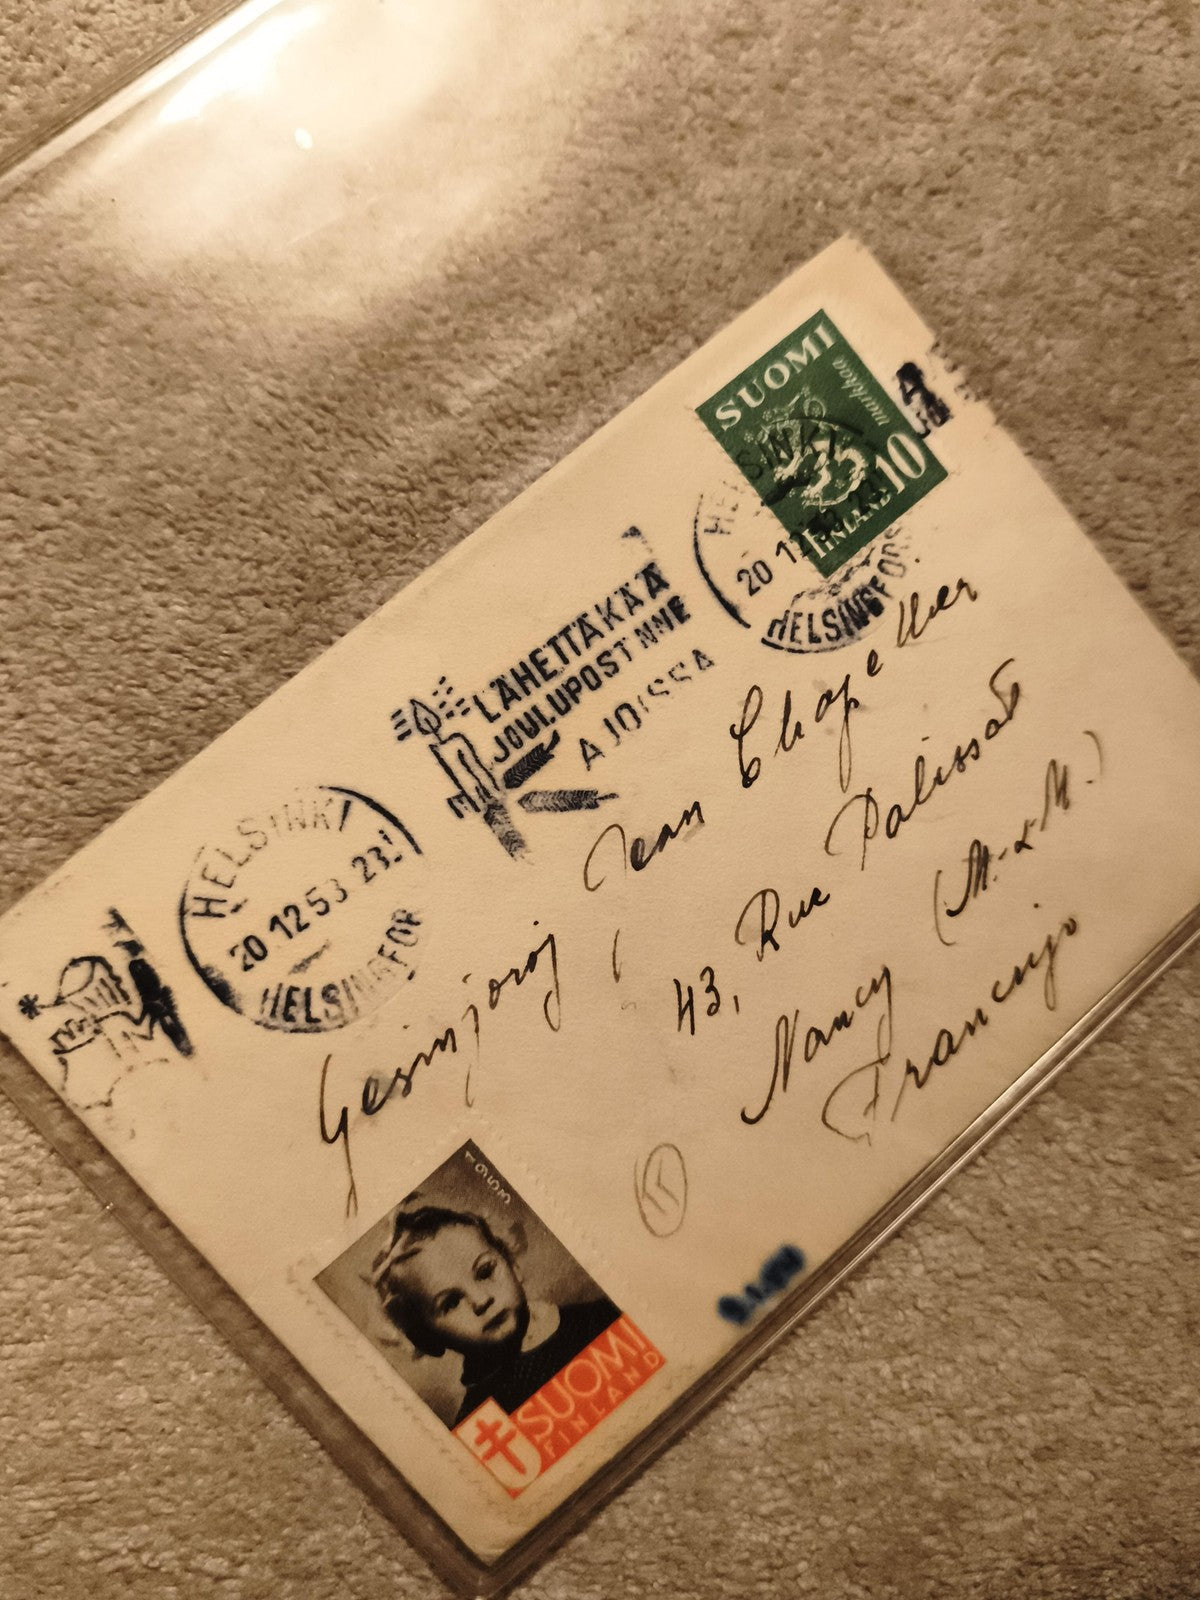 SUOMI
markkaa
10
FINLAND
HELSINKI
20 12 53 23
HELSINGFORS
LÄHETTÄKÄÄ
JOULUPOSTINNE
AJOISSA
HELSINKI
20 12 53 23
HELSINGFOR
Gesinjoroj Jean Chapellier
43, Rue Palissot
Nancy (M.-&M.)
Francujo
1953
SUOMI
FINLAND